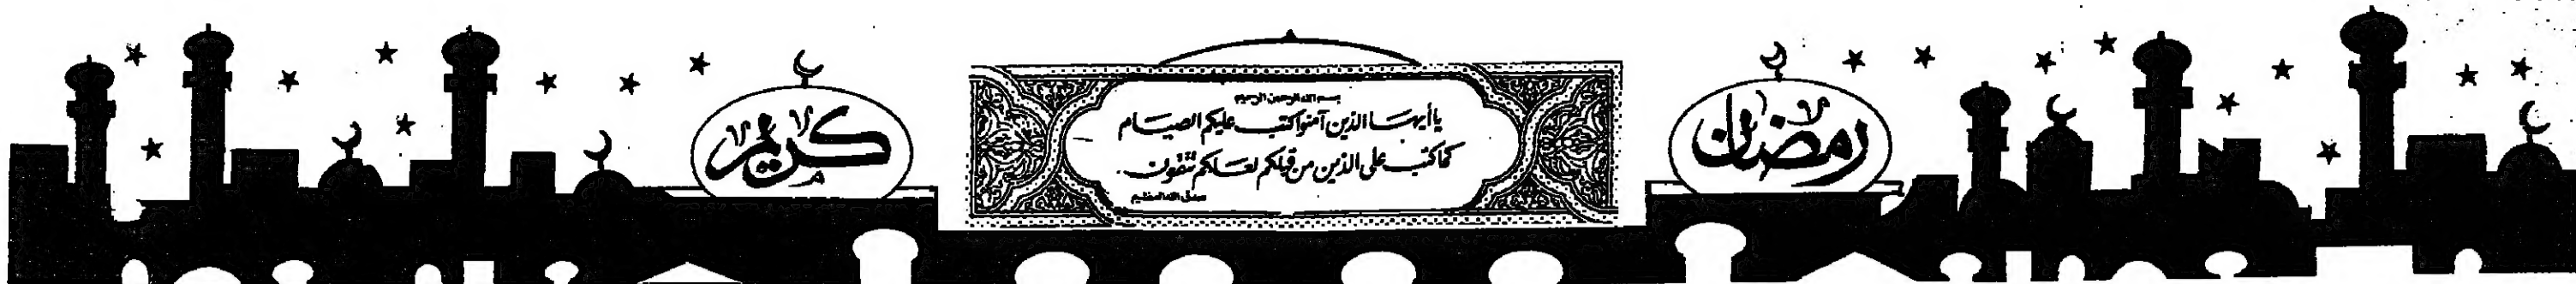 رمضان
بسم الله الرحمن الرحيم
يا أيها الذين آمنوا كتب عليكم الصيام
كما كتب على الذين من قبلكم لعلكم تتقون
صدق الله العظيم
كريم